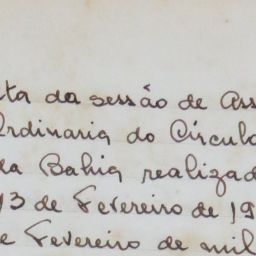 ta da sessão de Ass
Ordinaria do Círculo
da Bahia realizad
13 de Fevereiro de 19
e Fevereiro de mil